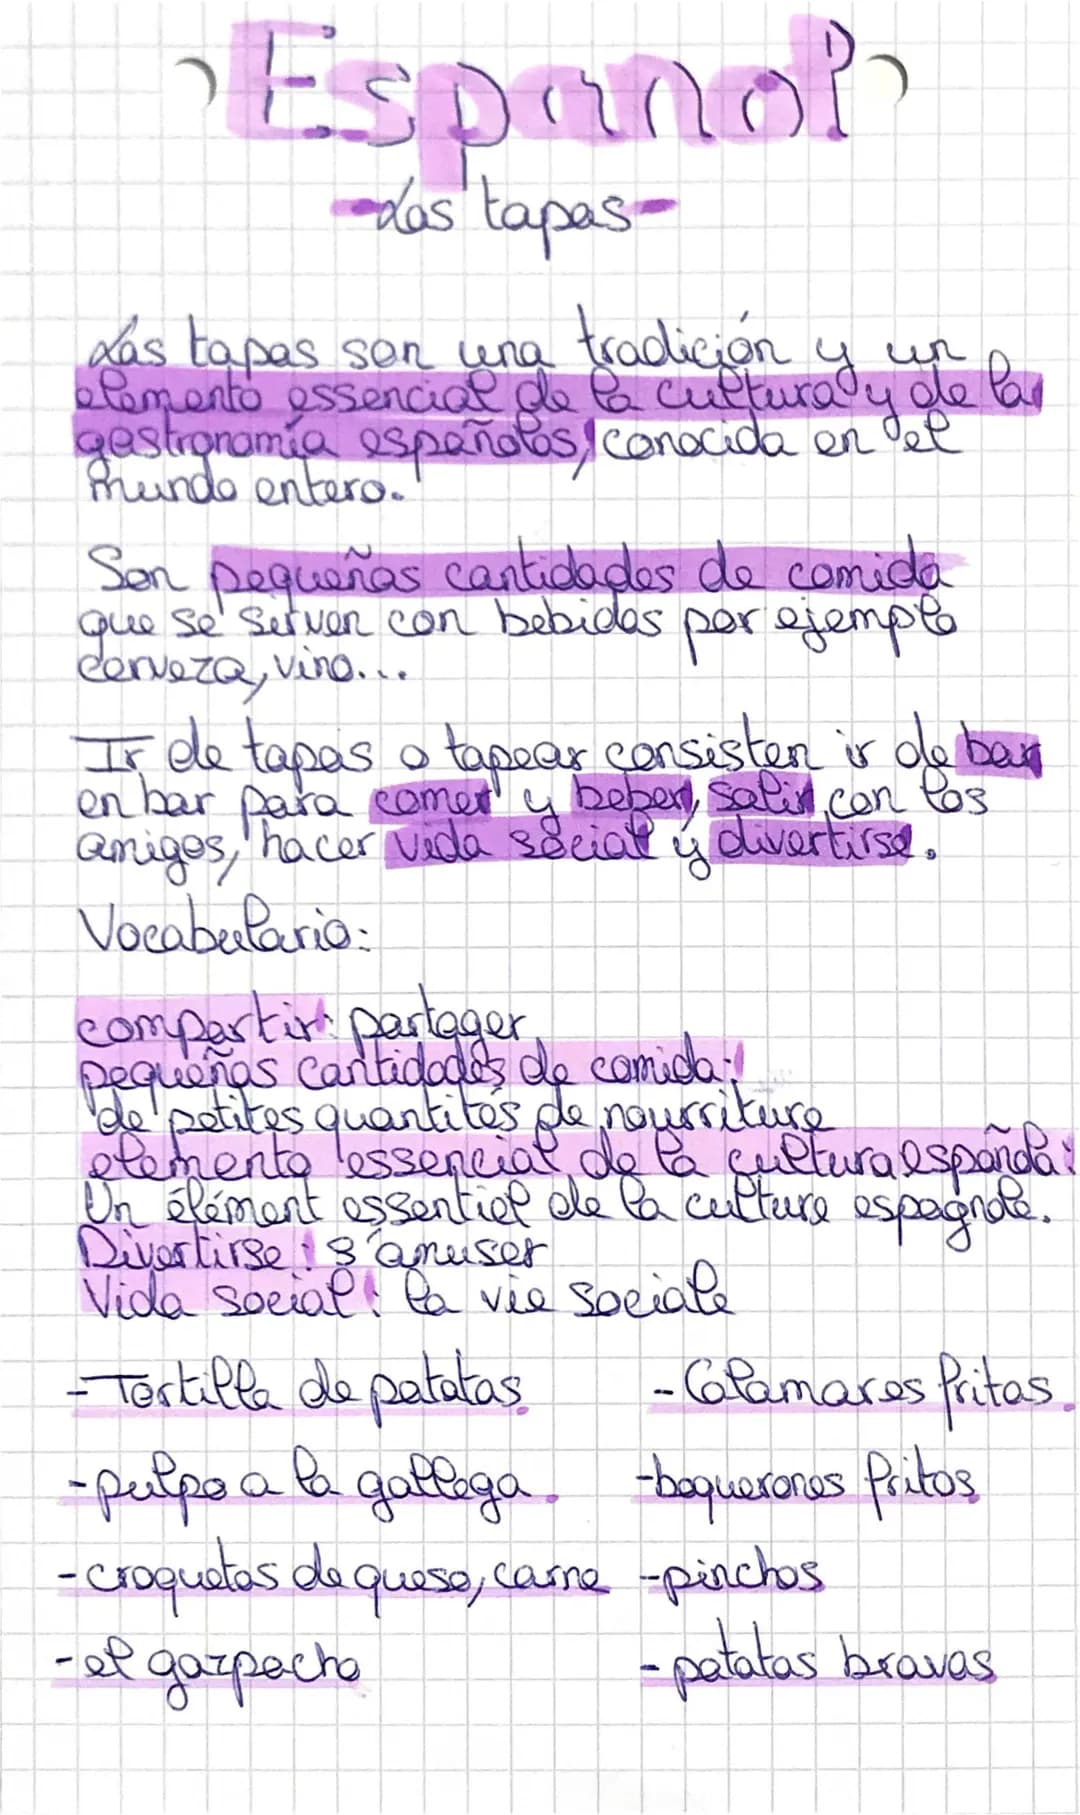 Espanol
-Las tapas-
Las tapas son una tradición y un
elemento essencial de la cultura y de la
gastronomía españolas, conocida en el
mundo entero.
Son pequeñas cantidades de comida
que se sirven con bebidas por ejemplo
cerveza, vino...
Ir de tapas o tapear consisten ir de bar
en bar para comer y beber, salir con los
amigos, hacer vida social y divertirse.
Vocabulario:
compartir: partager
pequeñas cantidades de comida:
de petites quantités de nourriture
elemento essencial de la cultura española:
Un élément essentiel de la culture espagnole.
Divertirse : s'amuser
Vida social : la vie sociale
-Tortilla de patatas
-Calamares fritas.
-pulpo a la gallega.
-boquerones fritos
-croquetas de queso, carne
-pinchos
-el gazpacho
-patatas bravas